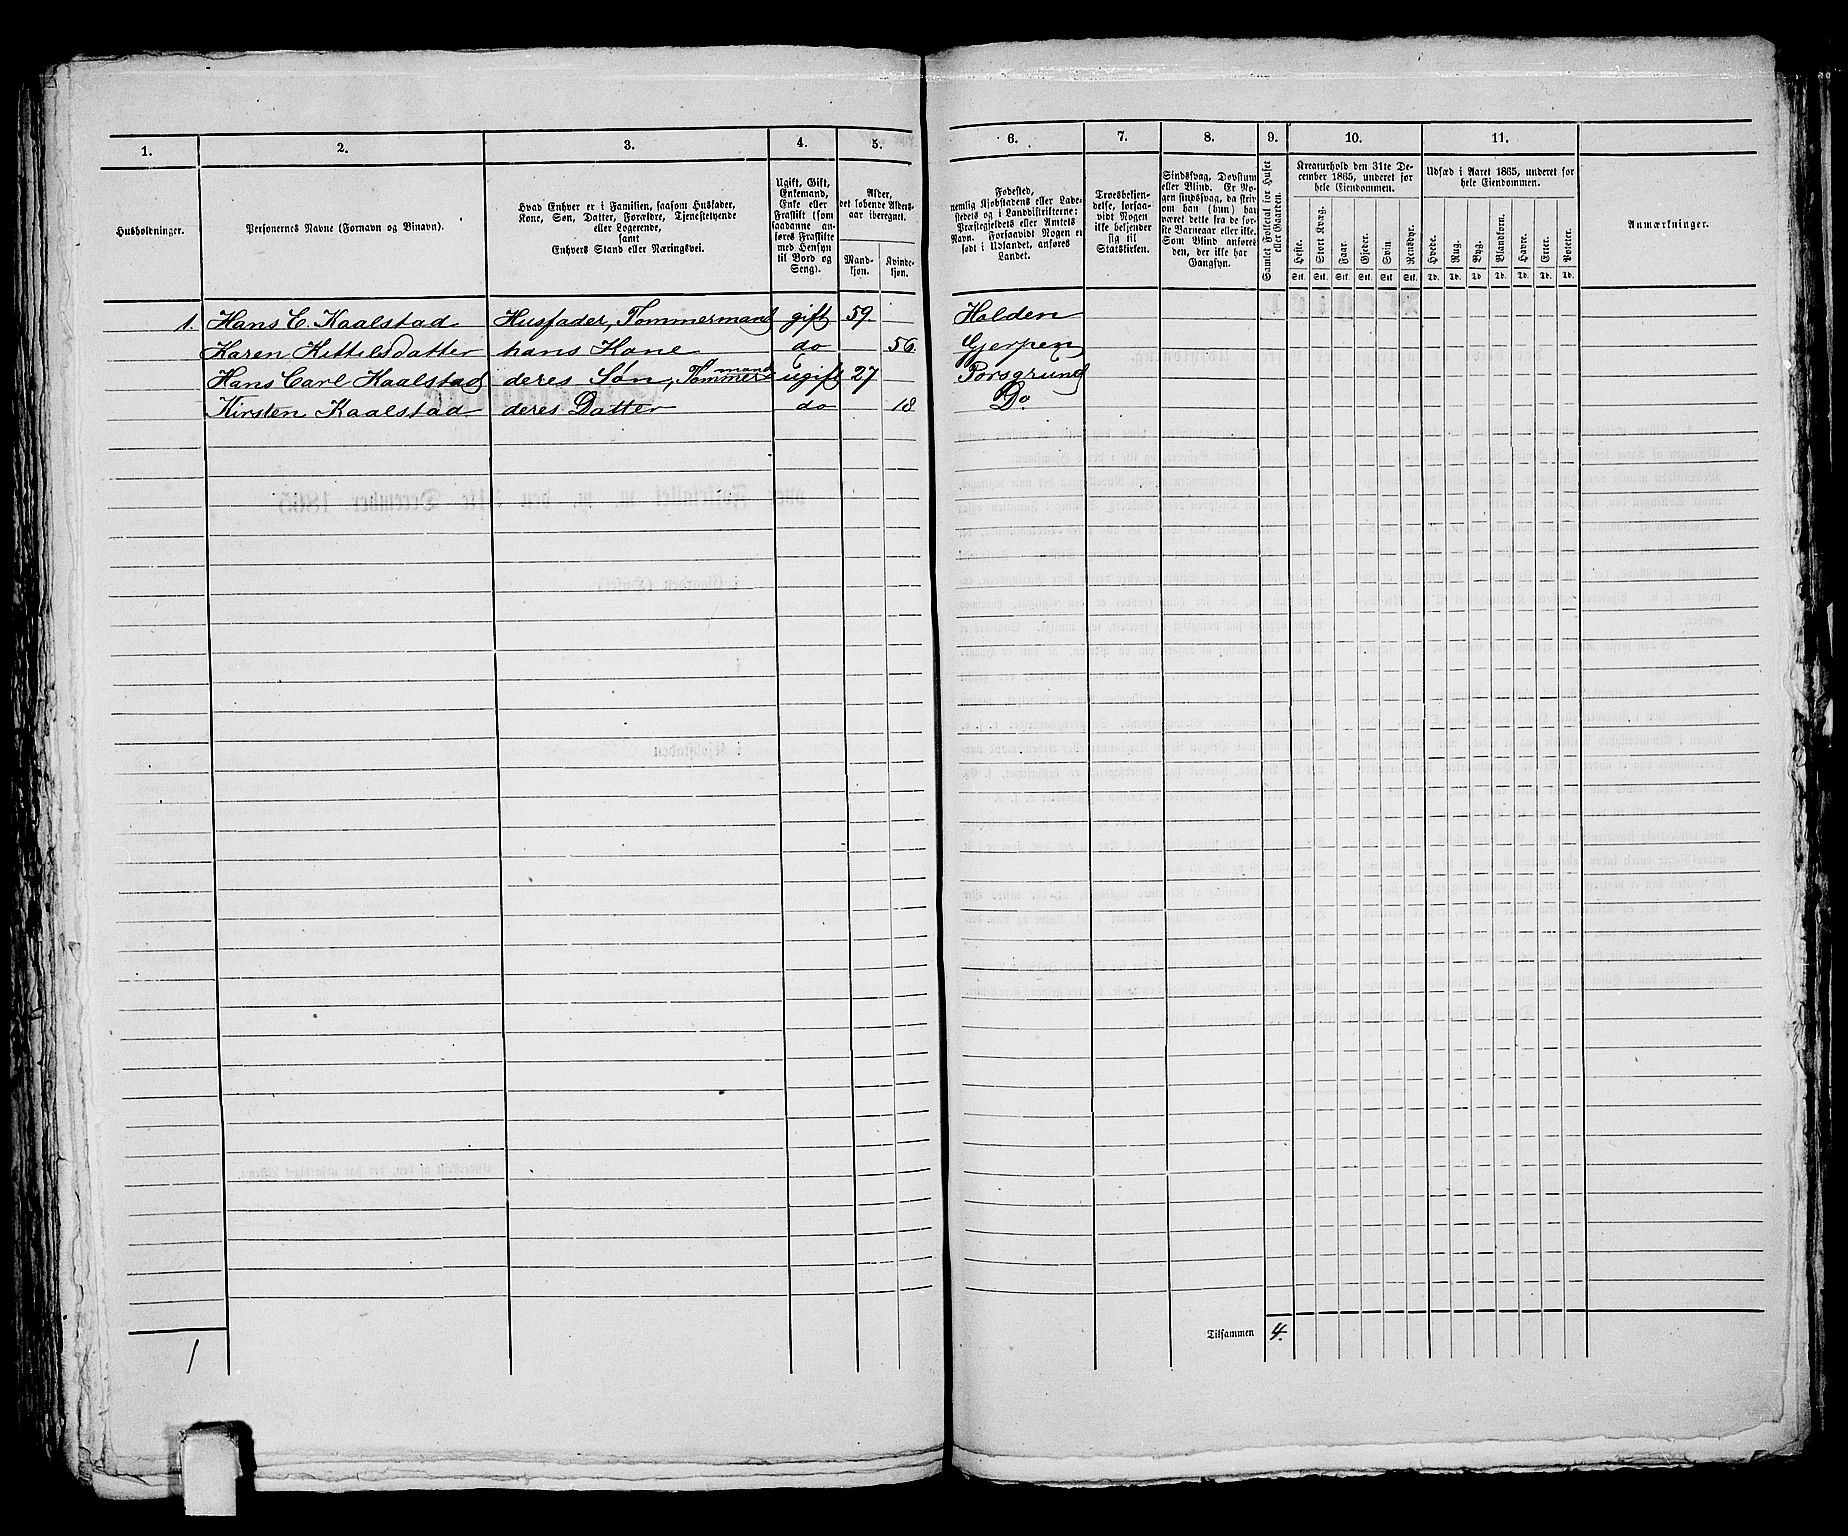 1. 2. 3. 4. 5. 6. 7. 8. 9. 10. 11.
Husholdninger.
Personernes Navne (Fornavn og Binavn).
Hvad Enhver er i Familien, saasom Husfader,
Kone, Søn, Datter, Forældre, Tjenestetyende
eller Logerende,
samt
Enhvers Stand eller Næringsvei.
Ugift, Gift,
Enkemand,
Enke eller
Fraskilt (som
saadanne an-
føres Fraskilte
med Hensyn
til Bord og
Seng).
Alder,
det løbende Alders-
aar iberegnet.
Mand-
kjøn.
Kvinde-
kjøn.
Fødested,
nemlig Kjøbstadens eller Lade-
stedets og i Landdistrikterne:
Præstegjeldets eller Amtets
Navn. Forsaavidt Nogen er
født i Udlandet, anføres
Landet.
Troesbekjen-
delse, forsaa-
vidt Nogen
ikke bekjender
sig til
Statskirken.
Sindssvag, Døvstum
eller Blind. Er No-
gen sindssvag, da skriv
om han (hun) har
været dette fra de før-
ste Barneaar eller ikke.
Som Blind anføres
den, der ikke har
Gangsyn.
Samlet Folketal for Huset
eller Gaarden.
Kreaturhold den 31te De-
cember 1865, underet for
hele Eiendommen.
Heste. Stort Kvæg. Faar. Gjeder. Svin. Rensdyr.
Stk. Stk. Stk. Stk. Stk. Stk.
Udsæd i Aaret 1865, underet for
hele Eiendommen.
Hvede. Rug. Byg. Blandkorn. Havre. Erter. Poteter.
Td. Td. Td. Td. Td. Td. Td.
Anmærkninger.
1. Hans C. Kaalstad Husfader, Tømmermand gift 59. Holden
Karen Kittilsdatter hans Kone do 56. Gjerpen
Hans Carl Kaalstad deres Søn, Tømmermand ugift 27 Porsgrund
Kirsten Kaalstad deres Datter do 18 Do.
Tilsammen 4.
1